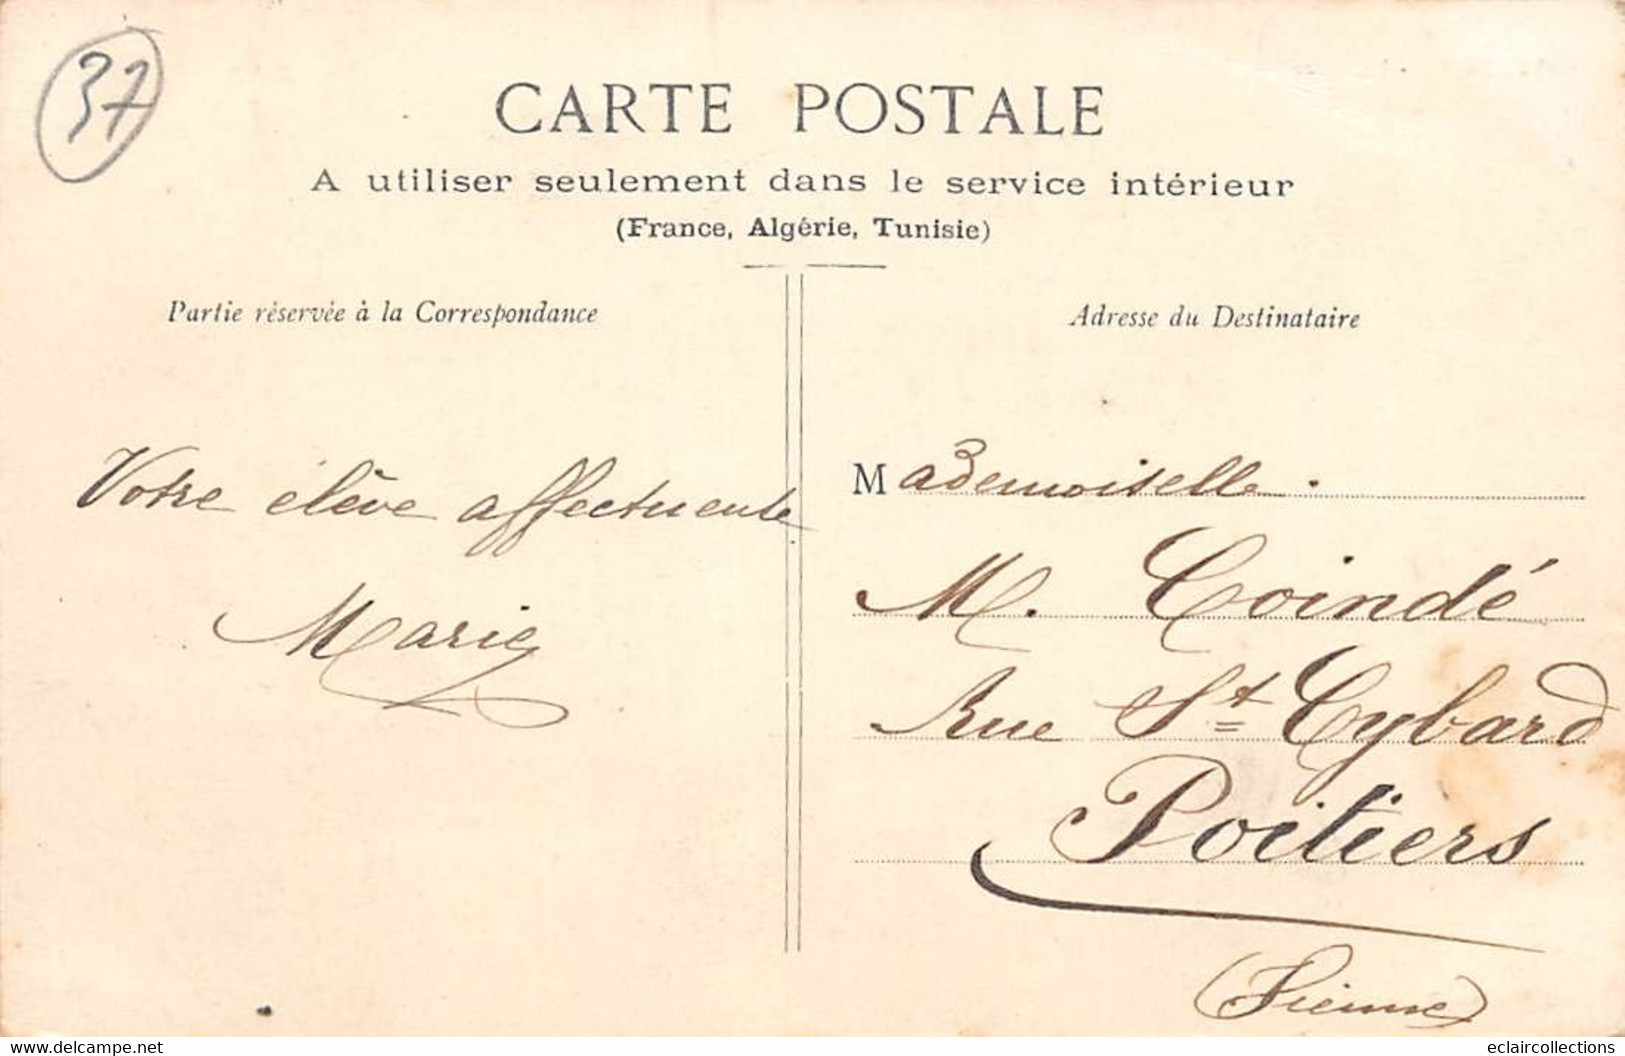 37
CARTE POSTALE
A utiliser seulement dans le service intérieur
(France, Algérie, Tunisie)
Partie réservée à la Correspondance
Votre élève affectuente
Marie
Adresse du Destinataire
Mademoiselle.
M. Coindé
Rue St Cybard
Poitiers
(Vienne)
www.delcampe.net
eclaircollections